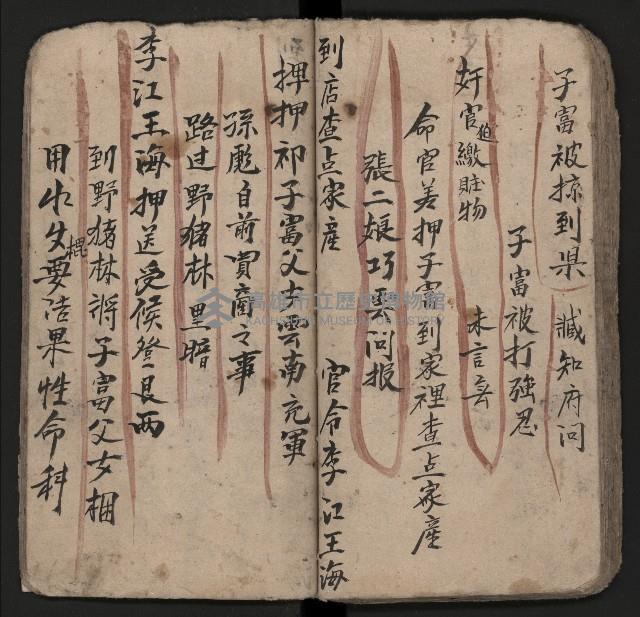 子富被掠到県　臧知府问
子富被打強忍
奸官追繳賍物　未言丢
命官差押子富到家裡查点家産
張二娘巧雲问报
到店查点家産　官令李江王海
押祁子富父女雲南充軍
孫彪自前賞商之事
路过野猪林里暗
李江王海押送受候登良両
到野猪林將子富父女捆
用水火棍要结果性命科
高雄市立歷史博物館
KAOHSIUNG MUSEUM OF HISTORY